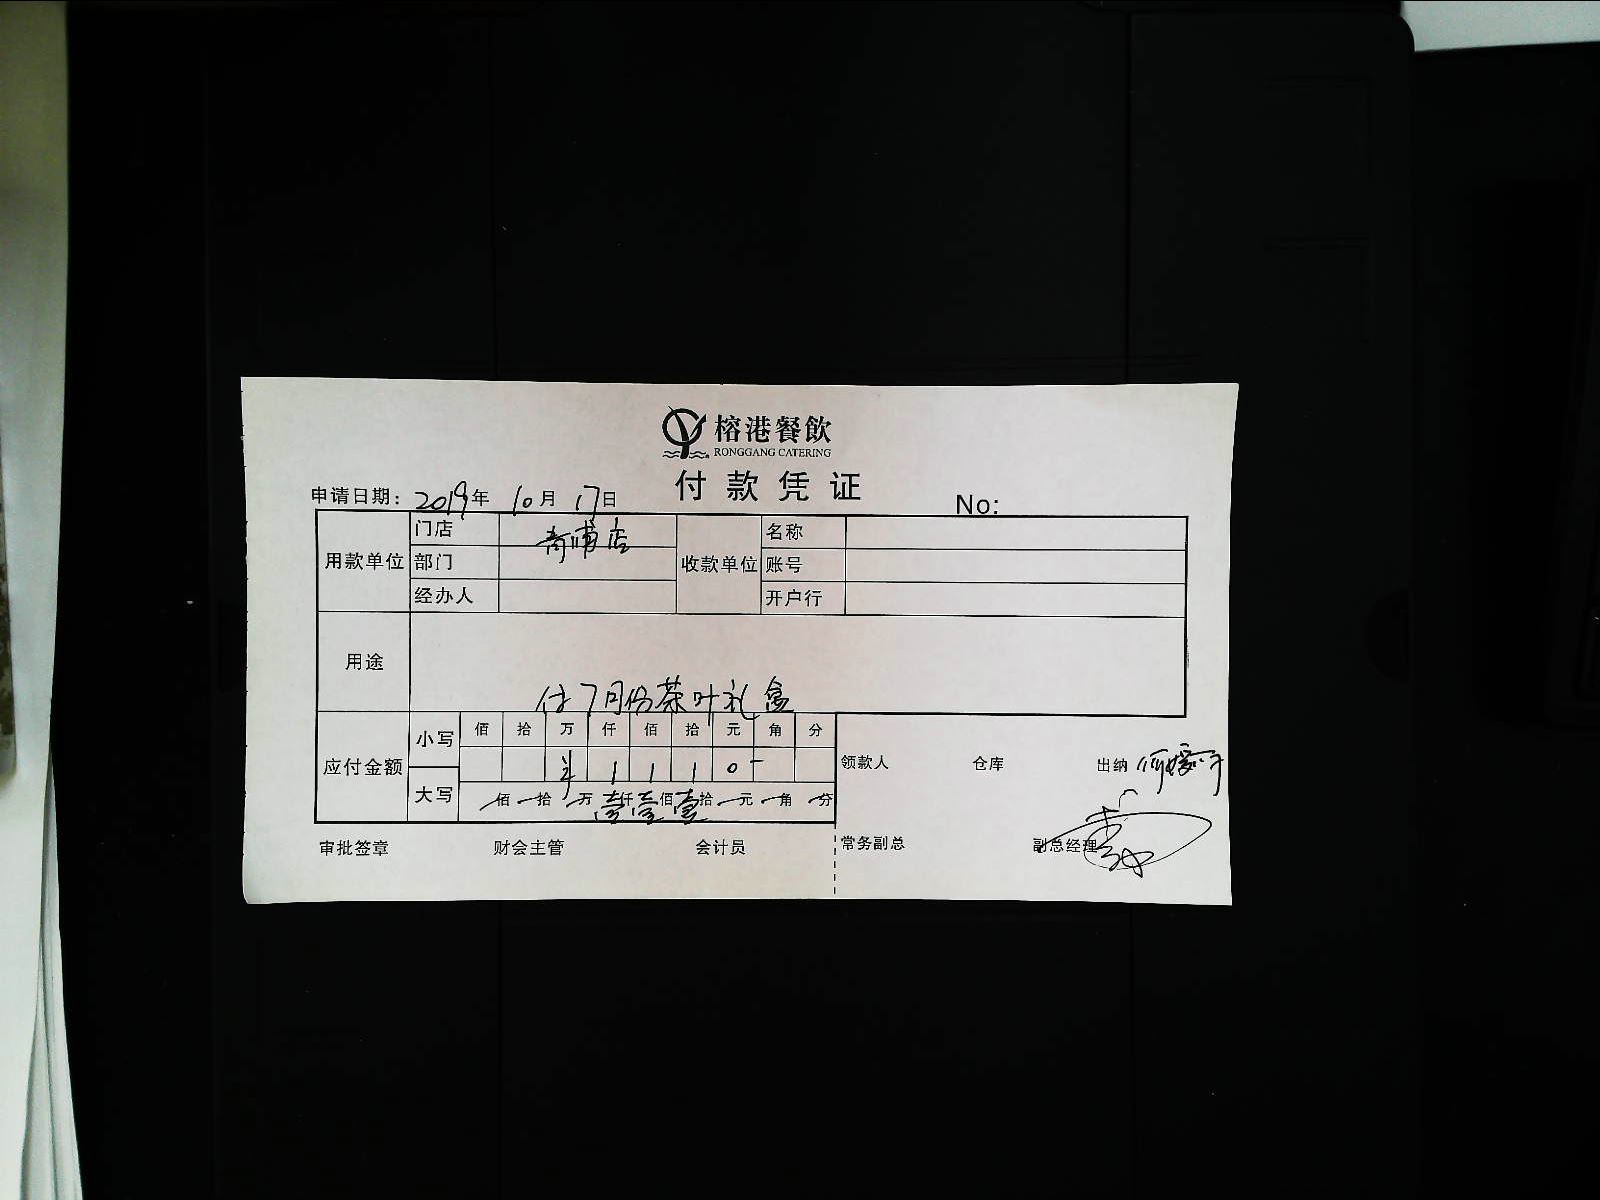 榕港餐飲
RONGGANG CATERING
付款凭证
申请日期：2019年 10月 17日 No:
用款单位 门店 青浦店 收款单位 名称
部门 账号
经办人 开户行
用途 付7月份茶叶礼盒
应付金额 小写 佰 拾 万 仟 佰 拾 元 角 分
¥ 1 1 1 0 -
大写 佰 拾 万 壹仟 壹佰 壹拾 元 角 分
领款人 仓库 出纳
审批签章 财会主管 会计员 常务副总 副总经理